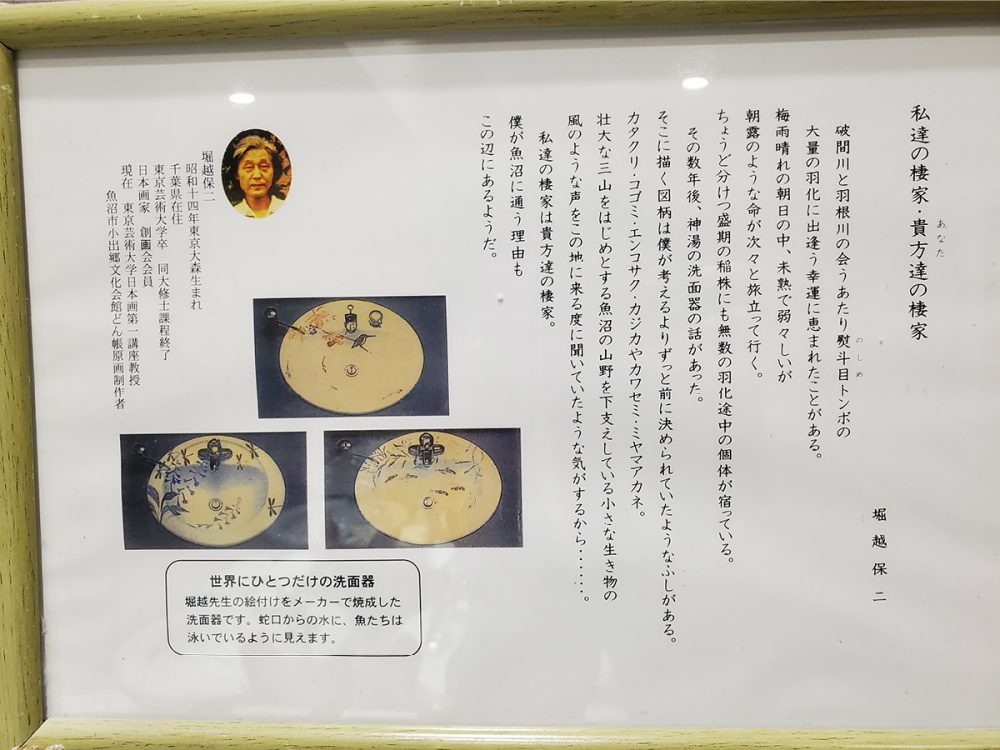 私達の棲家・貴方達の棲家
あなた
堀越保二
破間川と羽根川の会うあたり熨斗目トンボの
のしめ
大量の羽化に出逢う幸運に恵まれたことがある。
梅雨晴れの朝日の中、未熟で弱々しいが
朝露のような命が次々と旅立って行く。
ちょうど分けつ盛期の稲株にも無数の羽化途中の個体が宿っている。
その数年後、神湯の洗面器の話があった。
そこに描く図柄は僕が考えるよりずっと前に決められていたようなふしがある。
カタクリ・コゴミ・エンコサク・カジカやカワセミ・ミヤマアカネ。
壮大な三山をはじめとする魚沼の山野を下支えしている小さな生き物の
風のような声をこの地に来る度に聞いていたような気がするから・・・・・・。
私達の棲家は貴方達の棲家。
僕が魚沼に通う理由も
この辺にあるようだ。
堀越保二
昭和十四年東京大森生まれ
千葉県在住
東京芸術大学卒 同大修士課程終了
日本画家 創画会会員
現在 東京芸術大学日本画第一講座教授
魚沼市小出郷文化会館どん帳原画制作者
世界にひとつだけの洗面器
堀越先生の絵付けをメーカーで焼成した
洗面器です。蛇口からの水に、魚たちは
泳いでいるように見えます。